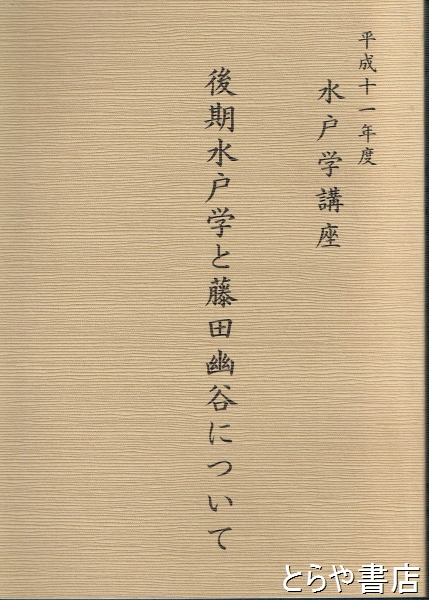 平成十一年度
水戸学講座
後期水戸学と藤田幽谷について
とらや書店